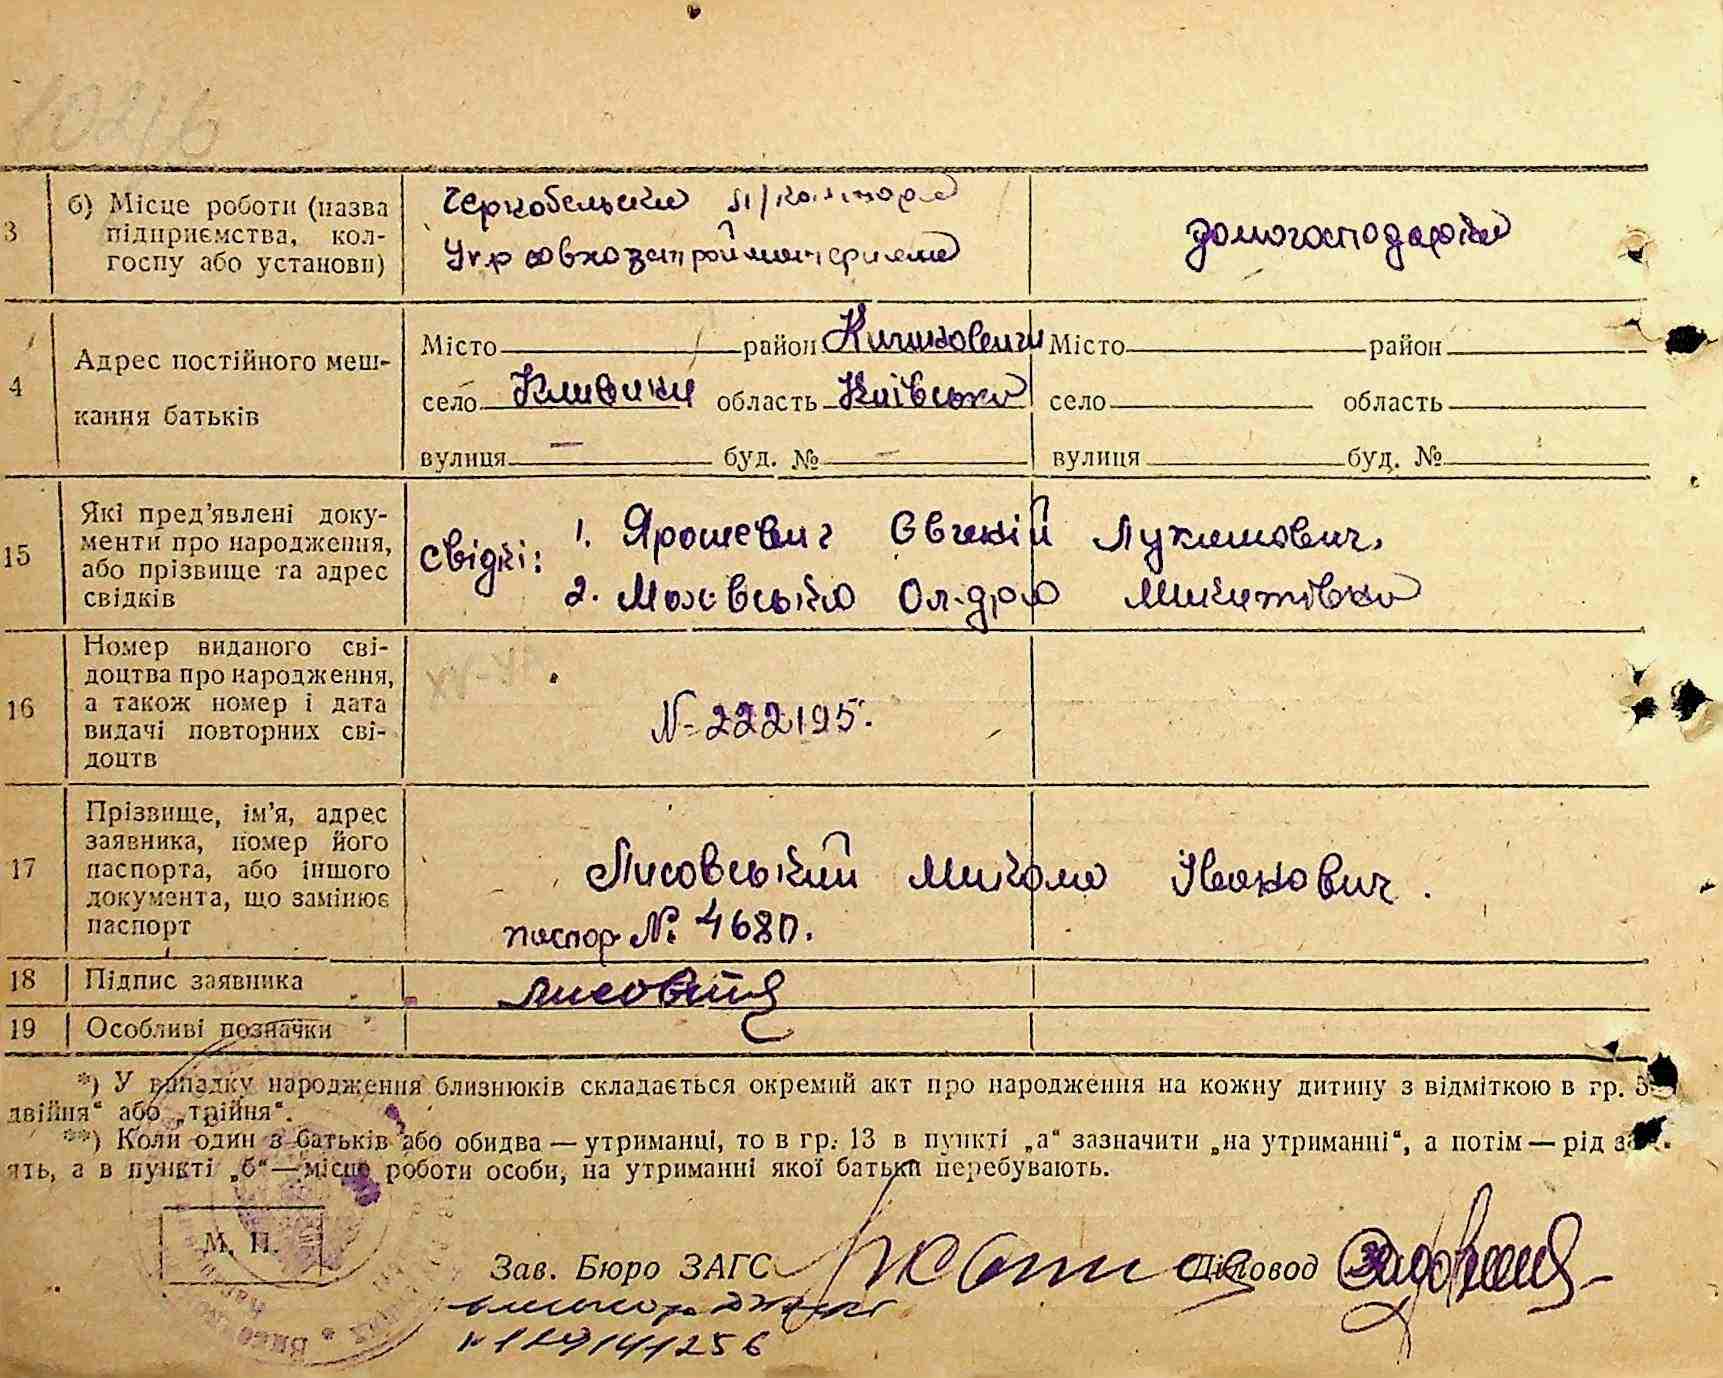 1046
3
б) Місце роботи (назва підприємства, кол-
госпу або установи)
Укрсовхозстройматеріала
домогосподарка
4
Адрес постійного меш-
кання батьків
Місто район Місто район
село область Київська село область
вулиця — буд. № — вулиця буд. №
15
Які пред'явлені доку-
менти про народження,
або прізвище та адрес
свідків
Свідкі: 1. Ярошевич Євгеній Лукашович,
2. Ол-дра Микитівна
16
Номер виданого сві-
доцтва про народження,
а також номер і дата
видачі повторних сві-
доцтв
№ 222195.
17
Прізвище, ім'я, адрес
заявника, номер його
паспорта, або іншого
документа, що замінює
паспорт
Лисовський Микола Іванович.
паспор №
18 Підпис заявника
19 Особливі позначки
*) У випадку народження близнюків складається окремий акт про народження на кожну дитину з відміткою в гр. 5
двійня" або „трійня".
**) Коли один з батьків або обидва — утриманці, то в гр. 13 в пункті „а" зазначити „на утриманні", а потім — рід
ять, а в пункті „б" — місце роботи особи, на утриманні якої батьки перебувають.
М. П.
Зав. Бюро ЗАГС Діловод